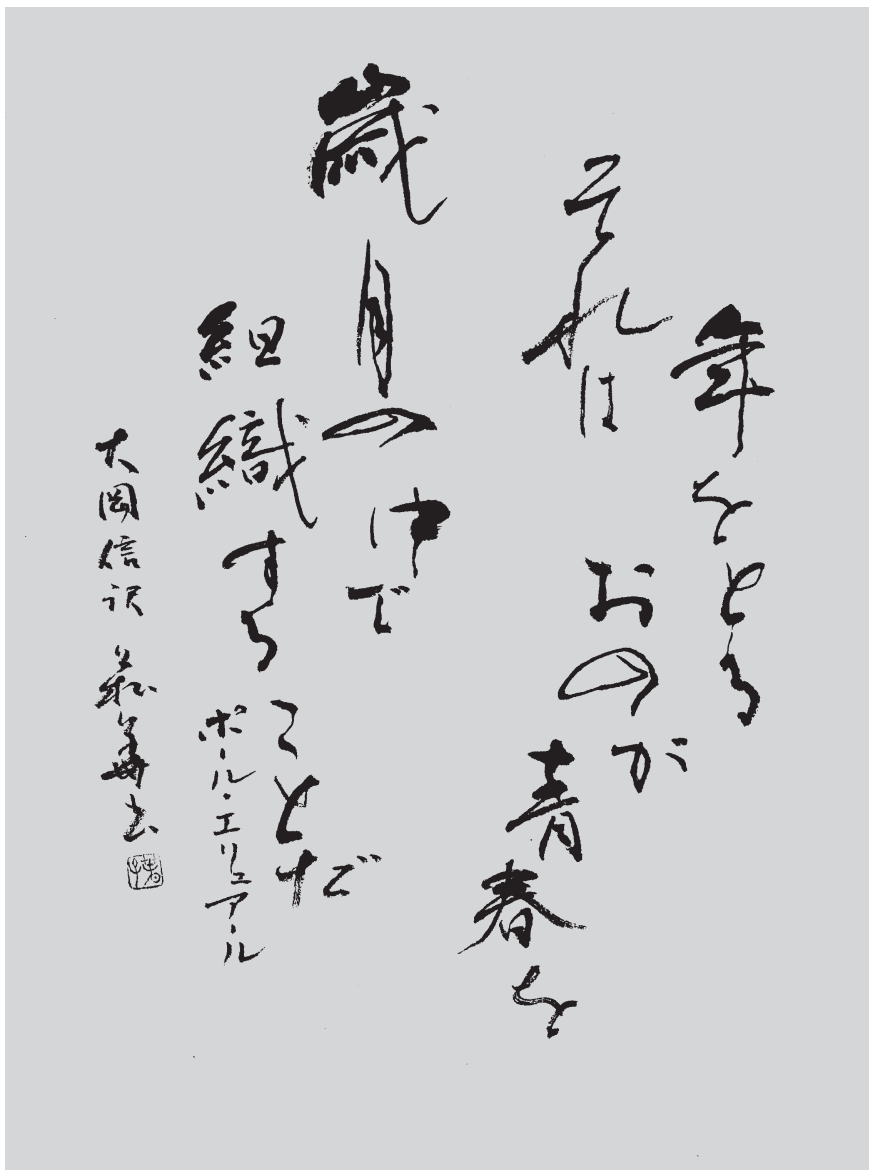 年をとる
それは おのが
青春を
歳月の中で
組織する
ことだ
ポール・エリュアール
大岡信訳 書